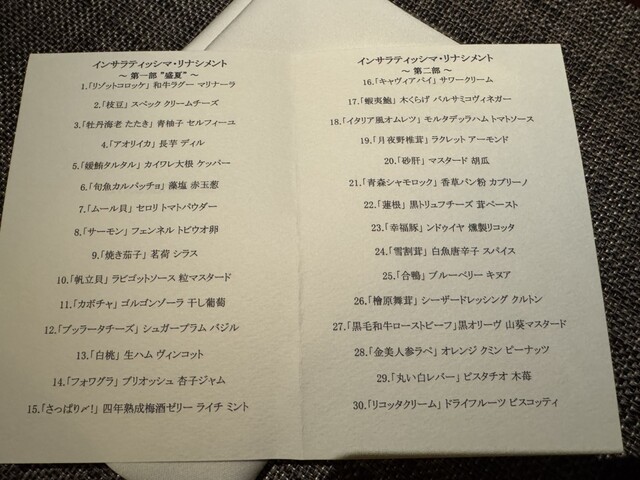 インサラティッシマ・リナシメント
～ 第一部 "盛夏" ～
1.「リゾットコロッケ」 和牛ラグー マリナーラ
2.「枝豆」 スペック クリームチーズ
3.「牡丹海老 たたき」 青柚子 セルフィーユ
4.「アオリイカ」 長芋 ディル
5.「鰹鮪タルタル」 カイワレ大根 ケッパー
6.「旬魚カルパッチョ」 藻塩 赤玉葱
7.「ムール貝」 セロリ トマトパウダー
8.「サーモン」 フェンネル トビウオ卵
9.「焼き茄子」 茗荷 シラス
10.「帆立貝」 ラビゴットソース 粒マスタード
11.「カボチャ」 ゴルゴンゾーラ 干し葡萄
12.「ブッラータチーズ」 シュガープラム バジル
13.「白桃」 生ハム ヴィンコット
14.「フォワグラ」 ブリオッシュ 杏子ジャム
15.「さっぱり〆!」 四年熟成梅酒ゼリー ライチ ミント
インサラティッシマ・リナシメント
～ 第二部 ～
16.「キャヴィアパイ」 サワークリーム
17.「蝦夷鮑」 木くらげ バルサミコヴィネガー
18.「イタリア風オムレツ」 モルタデッラハム トマトソース
19.「月夜野椎茸」 ラクレット アーモンド
20.「砂肝」 マスタード 胡瓜
21.「青森シャモロック」 香草パン粉 カプリーノ
22.「蓮根」 黒トリュフチーズ 茸ペースト
23.「幸福豚」 ンドゥイヤ 燻製リコッタ
24.「雪割茸」 白魚唐辛子 スパイス
25.「合鴨」 ブルーベリー キヌア
26.「檜原舞茸」 シーザードレッシング クルトン
27.「黒毛和牛ローストビーフ」 黒オリーヴ 山葵マスタード
28.「金美人参ラペ」 オレンジ クミン ピーナッツ
29.「丸い白レバー」 ピスタチオ 木苺
30.「リコッタクリーム」 ドライフルーツ ビスコッティ